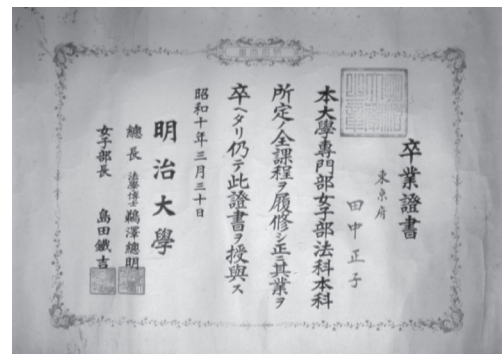 卒業證書
東京府
田中正子
本大學専門部女子部法科本科
所定ノ全課程ヲ履修シ正ニ其業ヲ
卒ヘタリ仍テ此證書ヲ授與ス
昭和十年三月三十日
明治大學
總長 法學博士 鵜澤總明
女子部長 島田鐵吉